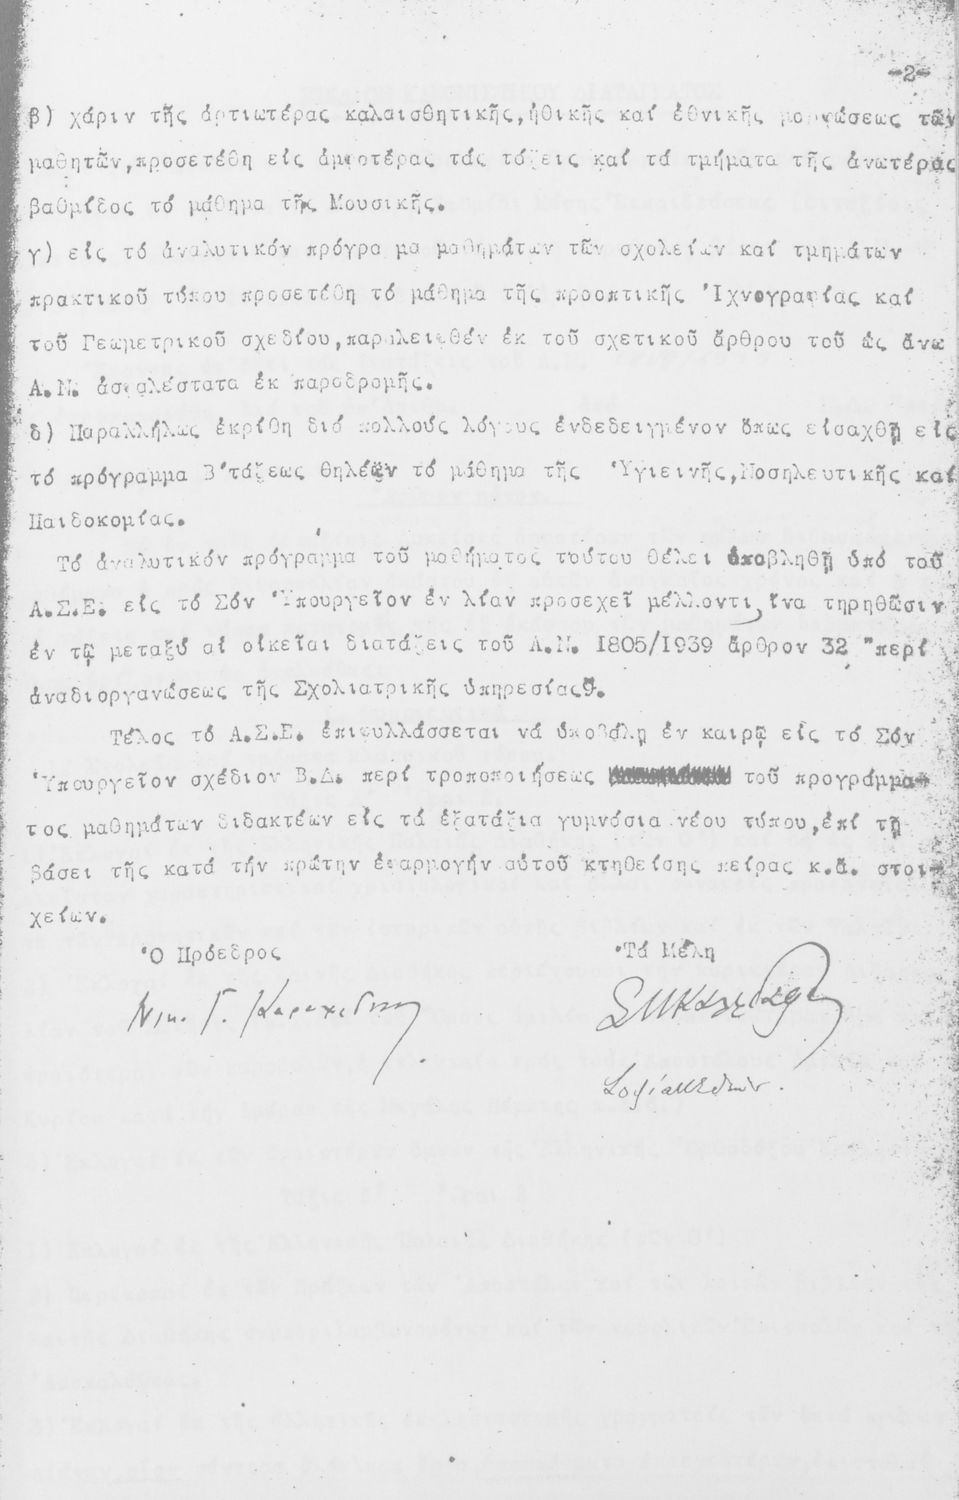 -2-
β) χάριν τῆς ἀρτιωτέρας καλαισθητικῆς,ἠθικῆς καί ἐθνικῆς μορφώσεως τῶν
μαθητῶν,προσετέθη εἰς ἀμφοτέρας τάς τάξεις καί τά τμήματα τῆς ἀνωτέρας
βαθμίδος τό μάθημα τῆς Μουσικῆς.
γ) εἰς τό ἀναλυτικόν πρόγρα μα μαθημάτων τῶν σχολείων καί τμημάτων
πρακτικοῦ τύπου προσετέθη τό μάθημα τῆς προοπτικῆς Ἰχνογραφίας καί
τοῦ Γεωμετρικοῦ σχεδίου,παραλειφθέν ἐκ τοῦ σχετικοῦ ἄρθρου τοῦ ὡς ἄνω
Α.Ν. ἀσφαλέστατα ἐκ παραδρομῆς.
δ) Παραλλήλως ἐκρίθη διό πολλούς λόγους ἐνδεδειγμένον ὅπως εἰσαχθῇ εἰς
τό πρόγραμμα Β'τάξεως θηλέων τό μάθημα τῆς Ὑγιεινῆς,Νοσηλευτικῆς καί
Παιδοκομίας.
Τό ἀναλυτικόν πρόγραμμα τοῦ μαθήματος τούτου θέλει ὑποβληθῇ ὑπό τοῦ
Α.Σ.Ε. εἰς τό Σόν Ὑπουργεῖον ἐν λίαν προσεχεῖ μέλλοντι, ἵνα τηρηθῶσιν
ἐν τῷ μεταξύ αἱ οἰκεῖαι διατάξεις τοῦ Α.Ν. 1805/1939 ἄρθρον 32 "περί
ἀναδιοργανώσεως τῆς Σχολιατρικῆς ὑπηρεσίας".
Τέλος τό Α.Σ.Ε. ἐπιφυλλάσσεται νά ὑποβάλῃ ἐν καιρῷ εἰς τό Σόν
Ὑπουργεῖον σχέδιον Β.Δ. περί τροποποιήσεως τοῦ προγράμμα-
τος μαθημάτων διδακτέων εἰς τά ἑξατάξια γυμνάσια νέου τύπου,ἐπί τῇ
βάσει τῆς κατά τήν πρώτην ἐφαρμογήν αὐτοῦ κτηθείσης πείρας κ.ἄ. στοι-
χείων.
Ὁ Πρόεδρος Τά Μέλη
Νικ. Γ.